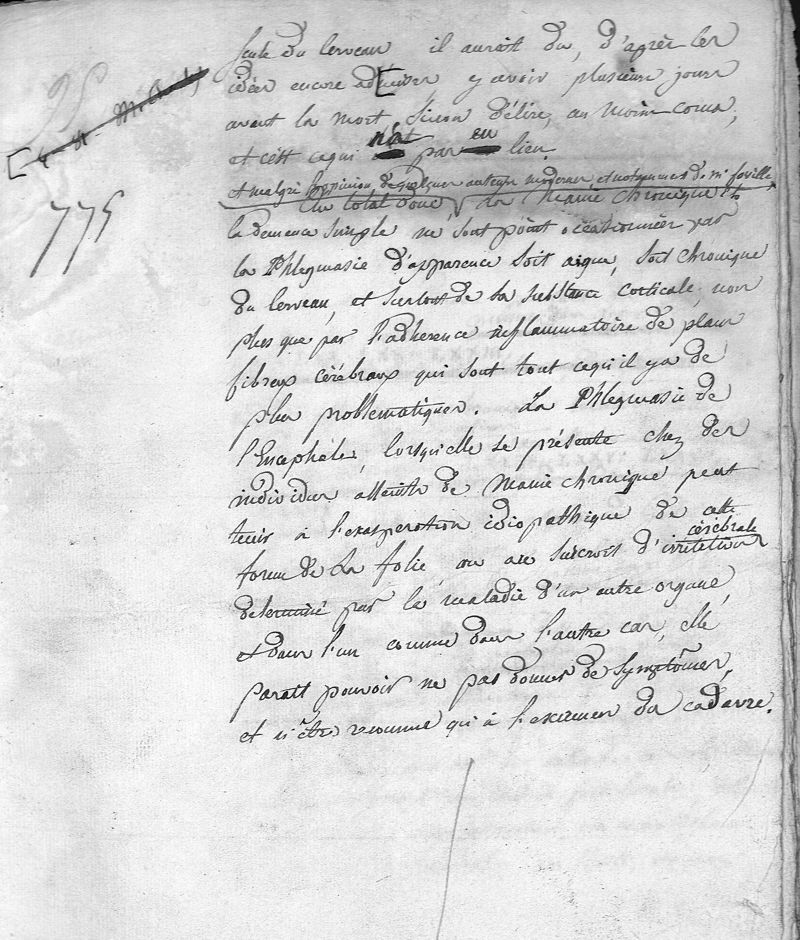 seule du cerveau il auroit du, d'après les
idées encore admises, y avoir plusieurs jours
avant la mort, sinon délire, au moins coma;
et c'est cequi n'a pas eu lieu.
775
et malgré l'opinion de quelques auteurs modernes et notamment de mr foville
En total donc, La Manie chronique et
la demence simple ne sont point occasionnées par
la Phlegmasie d'apparence soit aigue, soit chronique
du cerveau, et surtout de sa substance corticale, non
plus que par l'adherence inflammatoire de plans
fibreux cérébraux qui sont tout cequ'il y a de
plus problematiques. La Phlegmasie de
l'Encephale, lorsqu'elle se présente chez des
individus atteints de Manie chronique peut
tenir à l'exasperation idiopathique de cette
forme de La folie, ou au surcroit d'irritation cérébrale
determiné par la maladie d'un autre organe,
et dans l'un comme dans l'autre cas, elle
parait pouvoir ne pas donner de symptômes,
et n'être reconnue qu'à l'examen du cadavre.